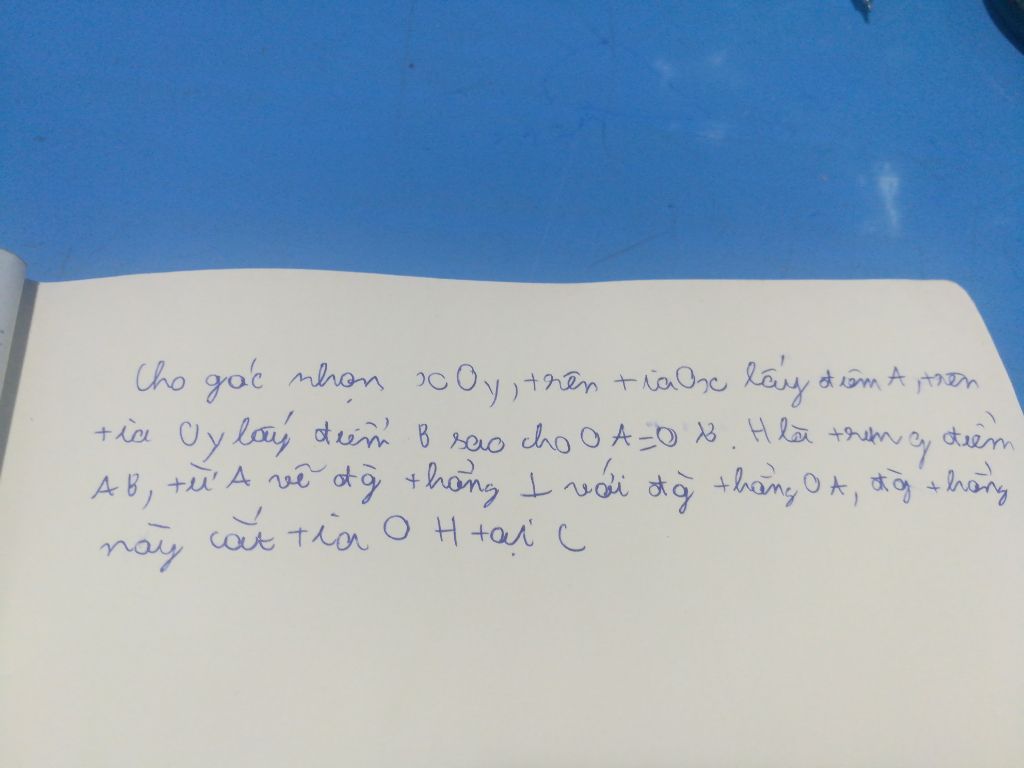 Cho góc nhọn xOy, trên tia Ox lấy điểm A, trên
tia Oy lấy điểm B sao cho OA=OB. H là trung điểm
AB, từ A vẽ đg thẳng ⊥ với đg thẳng OA, đg thẳng
này cắt tia OH tại C